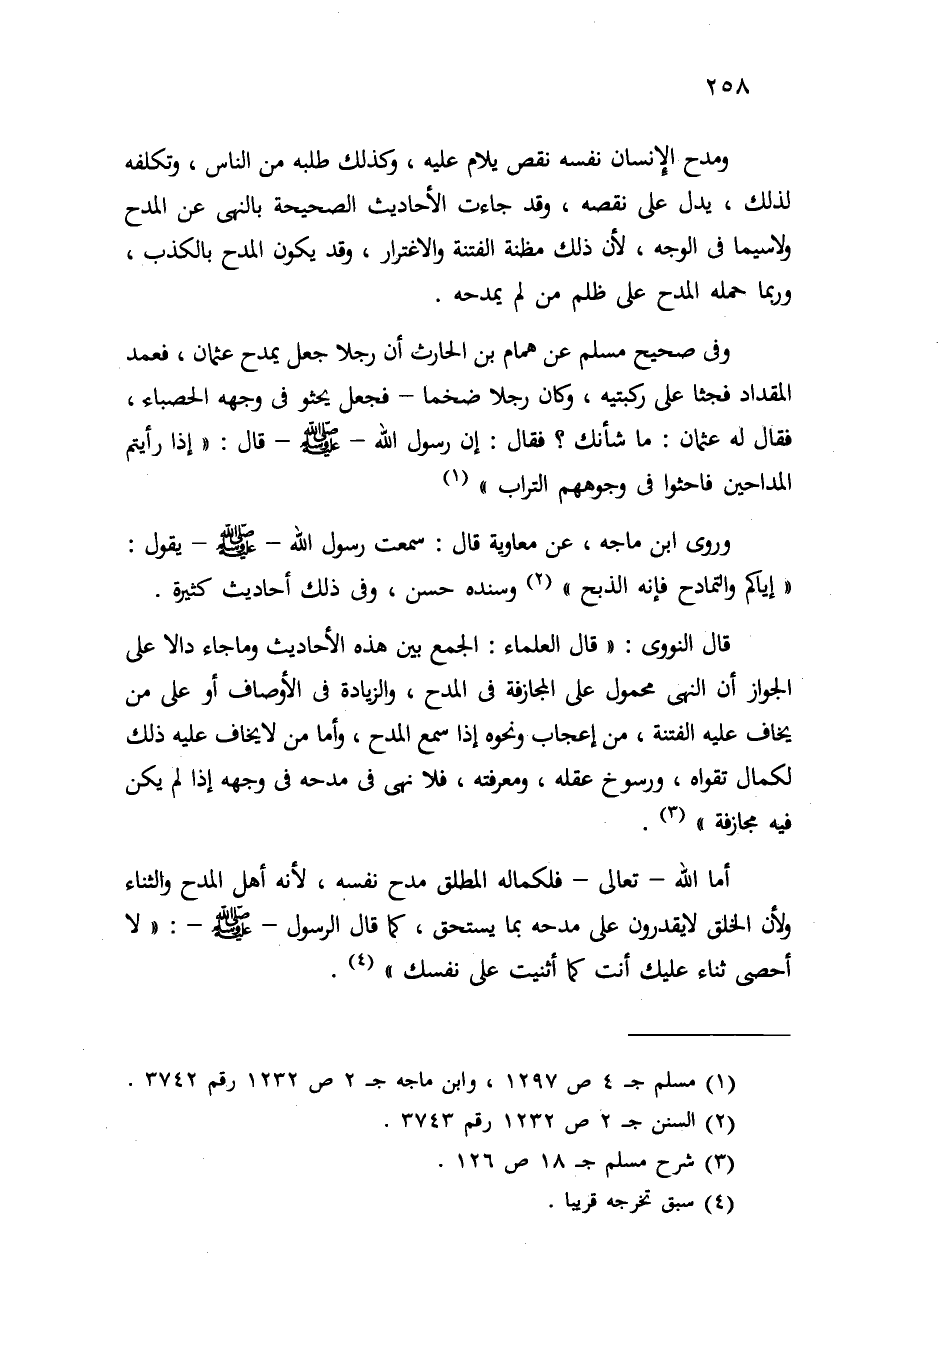 ٢٥٨
ومدح الإنسان نفسه نقص يلام عليه ، وكذلك طلبه من الناس ، وتكلفه
لذلك ، يدل على نقصه ، وقد جاءت الأحاديث الصحيحة بالنهى عن المدح
ولاسيما فى الوجه ، لأن ذلك مظنة الفتنة والاغترار ، وقد يكون المدح بالكذب ،
وربما حمله المدح على ظلم من لم يمدحه .
وفى صحيح مسلم عن همام بن الحارث أن رجلا جعل يمدح عثمان ، فعمد
المقداد فجثا على ركبتيه ، وكان رجلا ضخما – فجعل يحثو فى وجهه الحصباء ،
فقال له عثمان : ما شأنك ؟ فقال : إن رسول الله – ﷺ – قال : « إذا رأيتم
المداحين فاحثوا فى وجوههم التراب » (١)
وروى ابن ماجه ، عن معاوية قال : سمعت رسول الله – ﷺ – يقول :
« إياكم والتمادح فإنه الذبح » (٢) وسنده حسن ، وفى ذلك أحاديث كثيرة .
قال النووى : « قال العلماء : الجمع بين هذه الأحاديث وماجاء دالا على
الجواز أن النهى محمول على المجازفة فى المدح ، والزيادة فى الأوصاف أو على من
يخاف عليه الفتنة ، من إعجاب ونحوه إذا سمع المدح ، وأما من لايخاف عليه ذلك
لكمال تقواه ، ورسوخ عقله ، ومعرفته ، فلا نهى فى مدحه فى وجهه إذا لم يكن
فيه مجازفة » (٣) .
أما الله – تعالى – فلكماله المطلق مدح نفسه ، لأنه أهل المدح والثناء
ولأن الخلق لايقدرون على مدحه بما يستحق ، كما قال الرسول – ﷺ – : « لا
أحصى ثناء عليك أنت كما أثنيت على نفسك » (٤) .
(١) مسلم جـ ٤ ص ١٢٩٧ ، وابن ماجه جـ ٢ ص ١٢٣٢ رقم ٣٧٤٢ .
(٢) السنن جـ ٢ ص ١٢٣٢ رقم ٣٧٤٣ .
(٣) شرح مسلم جـ ١٨ ص ١٢٦ .
(٤) سبق تخرجه قريبا .